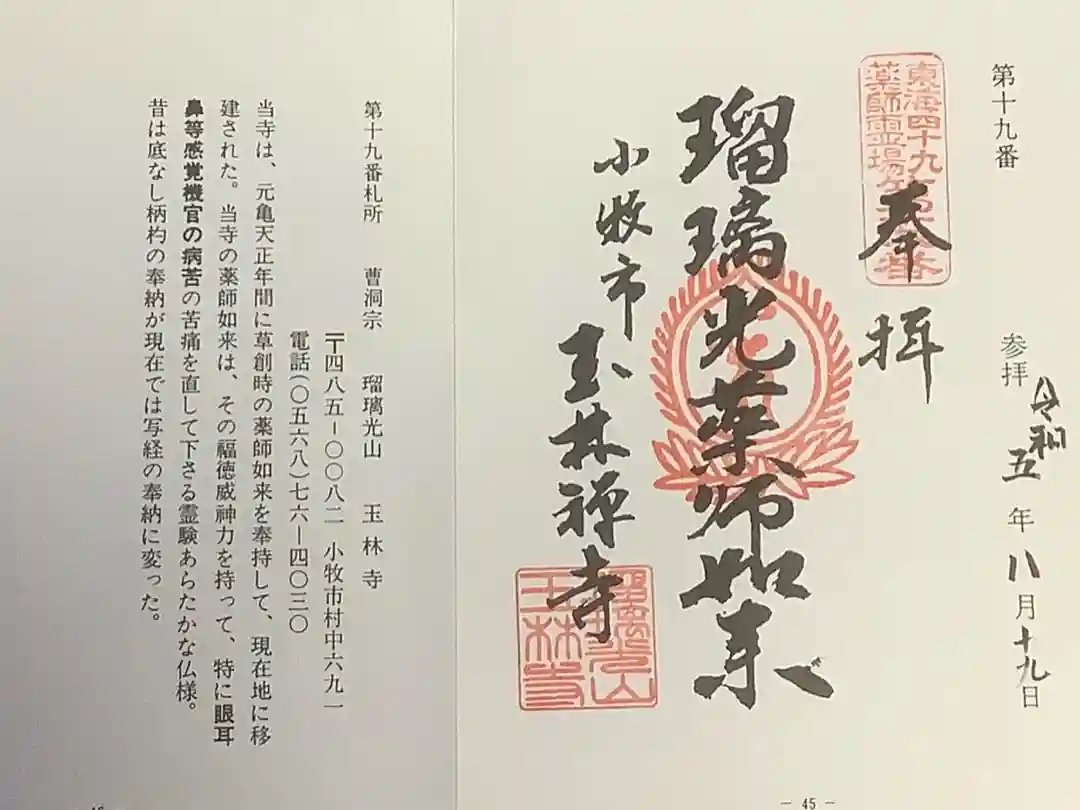 第十九番
参拝 令和五年八月十九日
東海四十九
薬師霊場
奉拝
瑠璃光薬師如来
小牧市 玉林禅寺
瑠璃光山
玉林寺
— 45 —
第十九番札所 曹洞宗 瑠璃光山 玉林寺
〒四八五-〇〇八二 小牧市村中六九一
電話(〇五六八)七六-四〇三〇
当寺は、元亀天正年間に草創時の薬師如来を奉持して、現在地に移
建された。当寺の薬師如来は、その福徳威神力を持って、特に眼耳
鼻等感覚機官の病苦の苦痛を直して下さる霊験あらたかな仏様。
昔は底なし柄杓の奉納が現在では写経の奉納に変った。